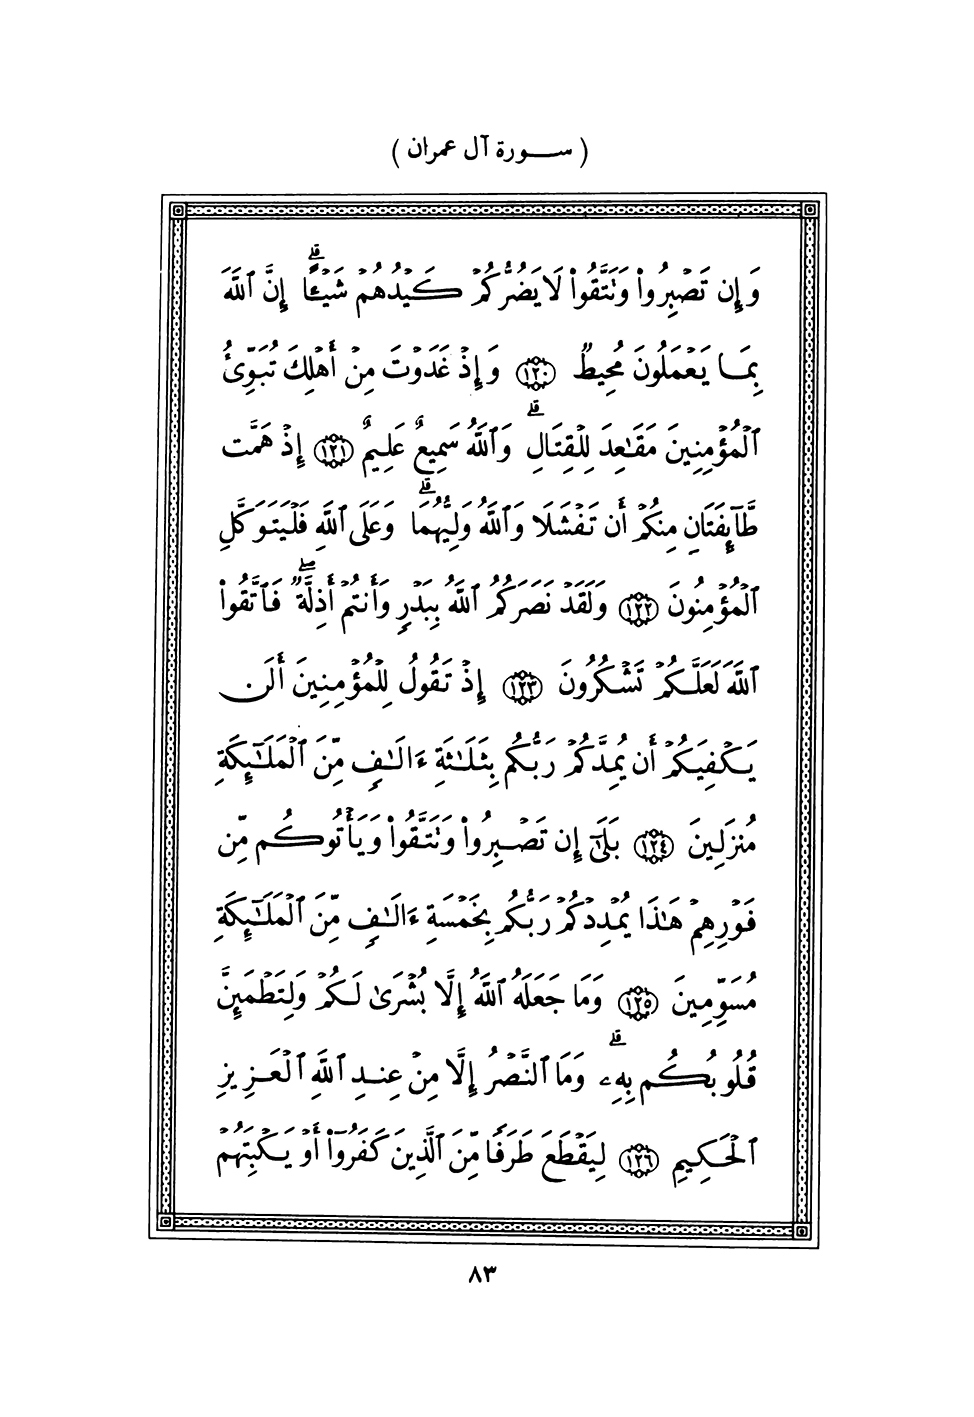 ( ســورة آل عمران )
وَإِن تَصۡبِرُواْ وَتَتَّقُواْ لَا يَضُرُّكُمۡ كَيۡدُهُمۡ شَيۡـًٔاۗ إِنَّ ٱللَّهَ
بِمَا يَعۡمَلُونَ مُحِيطٞ ١٢٠ وَإِذۡ غَدَوۡتَ مِنۡ أَهۡلِكَ تُبَوِّئُ
ٱلۡمُؤۡمِنِينَ مَقَٰعِدَ لِلۡقِتَالِۗ وَٱللَّهُ سَمِيعٌ عَلِيمٌ ١٢١ إِذۡ هَمَّت
طَّآئِفَتَانِ مِنكُمۡ أَن تَفۡشَلَا وَٱللَّهُ وَلِيُّهُمَاۗ وَعَلَى ٱللَّهِ فَلۡيَتَوَكَّلِ
ٱلۡمُؤۡمِنُونَ ١٢٢ وَلَقَدۡ نَصَرَكُمُ ٱللَّهُ بِبَدۡرٖ وَأَنتُمۡ أَذِلَّةٞۖ فَٱتَّقُواْ
ٱللَّهَ لَعَلَّكُمۡ تَشۡكُرُونَ ١٢٣ إِذۡ تَقُولُ لِلۡمُؤۡمِنِينَ أَلَن
يَكۡفِيَكُمۡ أَن يُمِدَّكُمۡ رَبُّكُم بِثَلَٰثَةِ ءَالَٰفٖ مِّنَ ٱلۡمَلَٰٓئِكَةِ
مُنزَلِينَ ١٢٤ بَلَىٰٓۚ إِن تَصۡبِرُواْ وَتَتَّقُواْ وَيَأۡتُوكُم مِّن
فَوۡرِهِمۡ هَٰذَا يُمۡدِدۡكُمۡ رَبُّكُم بِخَمۡسَةِ ءَالَٰفٖ مِّنَ ٱلۡمَلَٰٓئِكَةِ
مُسَوِّمِينَ ١٢٥ وَمَا جَعَلَهُ ٱللَّهُ إِلَّا بُشۡرَىٰ لَكُمۡ وَلِتَطۡمَئِنَّ
قُلُوبُكُم بِهِۦۗ وَمَا ٱلنَّصۡرُ إِلَّا مِنۡ عِندِ ٱللَّهِ ٱلۡعَزِيزِ
ٱلۡحَكِيمِ ١٢٦ لِيَقۡطَعَ طَرَفٗا مِّنَ ٱلَّذِينَ كَفَرُوٓاْ أَوۡ يَكۡبِتَهُمۡ
٨٣